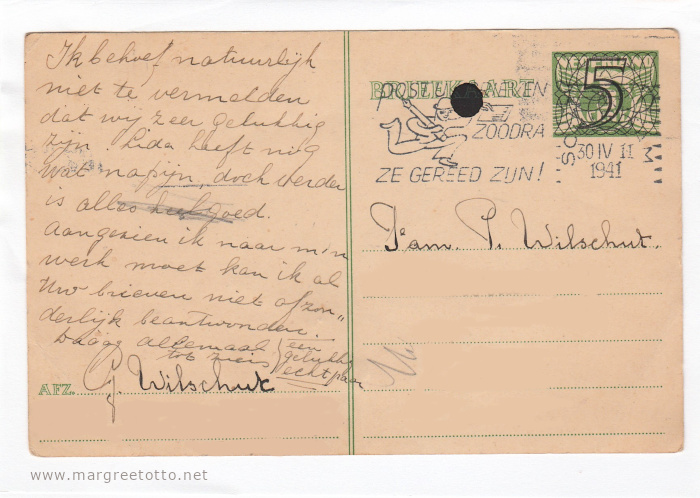 Ik behoef natuurlijk
niet te vermelden
dat wij zeer gelukkig
zijn. Lida heeft nog
wat napijn, doch verder
is alles heel goed.
Aangezien ik naar mijn
werk moet kan ik al
Uw brieven niet afzon„
derlijk beantwoorden.
Daag allemaal
tot ziens
een
gelukkig
echtpaar
AFZ. G. Wilschut
BRIEFKAART
5
POSTEN
ZOODRA
ZE GEREED ZIJN!
30 IV 11
1941
Fam. P. Wilschut.
www.margreetotto.net